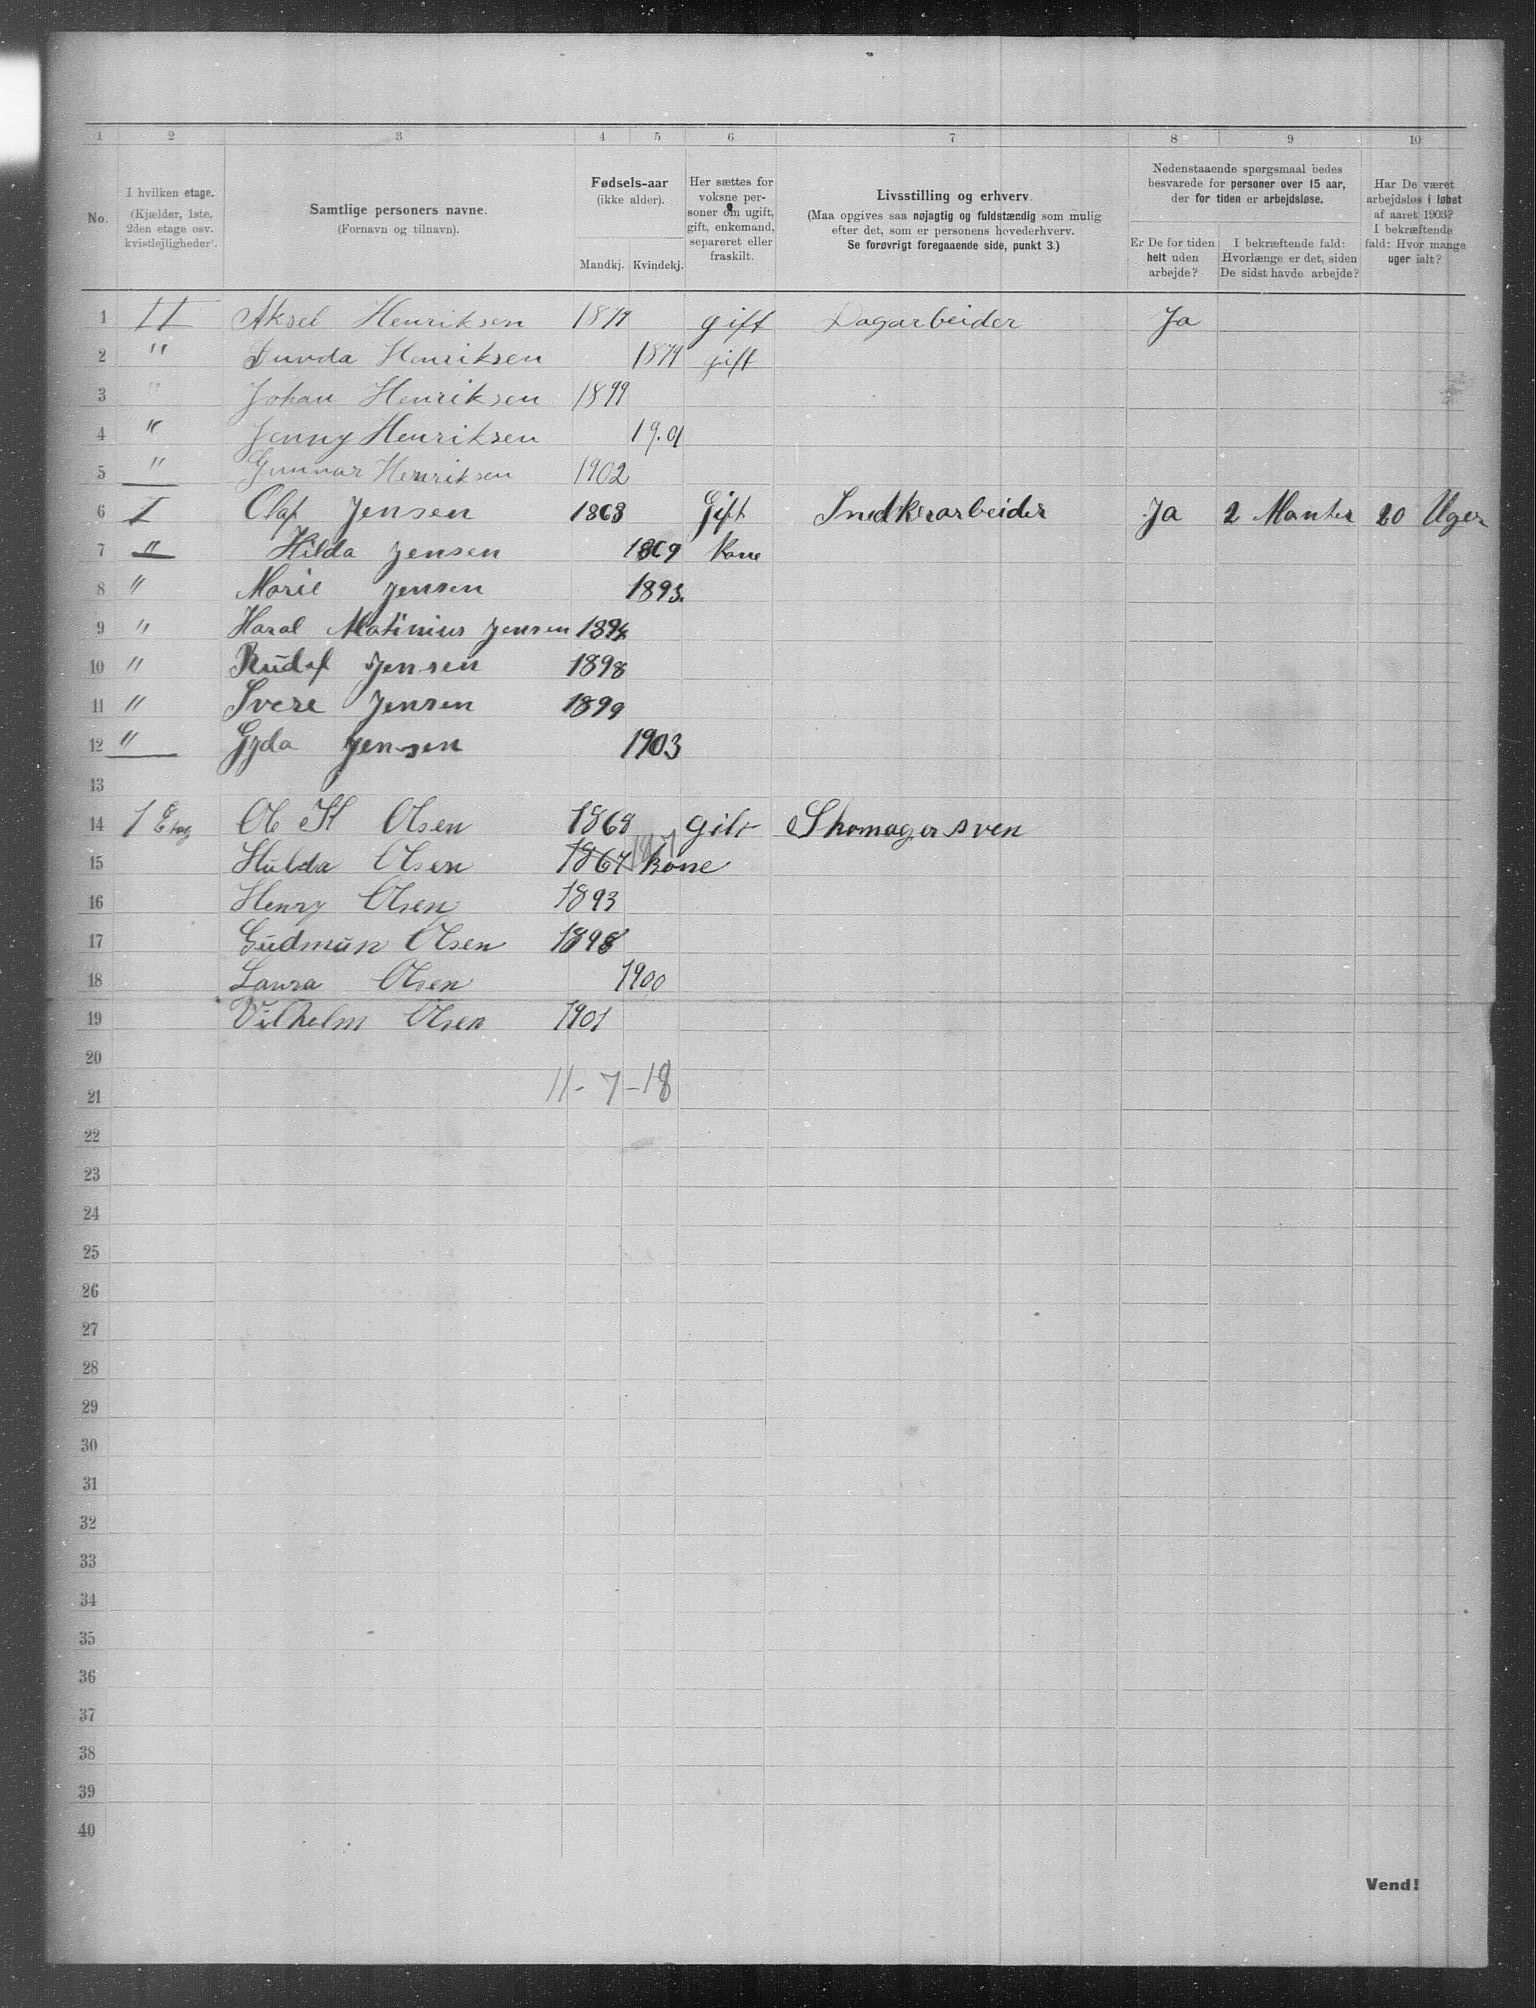 1 2 3 4 5 6 7 8 9 10
No.
I hvilken etage.
(Kjælder, 1ste,
2den etage osv.
kvistlejligheder).
Samtlige personers navne.
(Fornavn og tilnavn).
Fødsels-aar
(ikke alder).
Mandkj. Kvindekj.
Her sættes for
voksne per-
soner om ugift,
gift, enkemand,
separeret eller
fraskilt.
Livsstilling og erhverv.
(Maa opgives saa nøjagtig og fuldstændig som mulig
efter det, som er personens hovederhverv.
Se forøvrigt foregaaende side, punkt 3.)
Nedenstaaende spørgsmaal bedes
besvarede for personer over 15 aar,
der for tiden er arbejdsløse.
Er De for tiden
helt uden
arbejde?
I bekræftende fald:
Hvorlænge er det, siden
De sidst havde arbejde?
Har De været
arbejdsløs i løbet
af aaret 1903?
I bekræftende
fald: Hvor mange
uger ialt?
1 II Aksel Henriksen gift Dagarbeider Ja
2 " Henriksen gift
3 " Johan Henriksen 1899
4 " Jenny Henriksen 19.01
5 " Gunnar Henriksen 1902
6 I Olaf Jensen 1863 Gift Snedkerarbeider Ja 2 Manter 20 Uger
7 " Hilda Jensen 1869 Kone
8 " Marie Jensen 1893.
9 " Haral Matinius Jensen 1894
10 " Rudof Jensen 1898
11 " Svere Jensen 1899
12 " Gyda Jensen 1903
13
14 1 Etag Ole K Olsen 1868 gift Skomagersven
15 Hulda Olsen 1867 kone
16 Henry Olsen 1893
17 Gudmun Olsen 1898
18 Laura Olsen 1900
19 Vilhelm Olsen 1901
20
11-7-18
21
22
23
24
25
26
27
28
29
30
31
32
33
34
35
36
37
38
39
40
Vend!